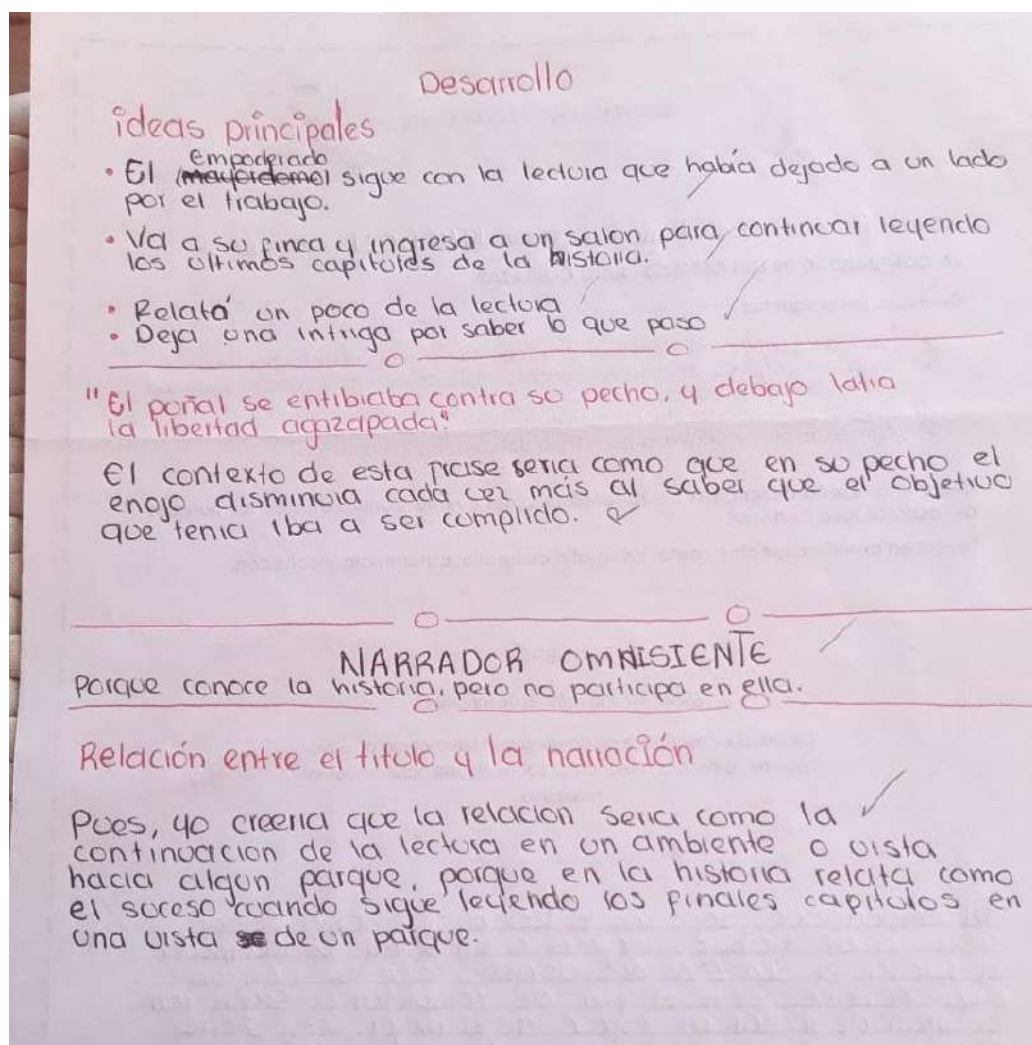 Desarrollo
ideas principales
empoderado
• El (mayordomo) sigue con la lectura que había dejado a un lado
por el trabajo.
• Va a su finca y ingresa a un salon para continuar leyendo
los ultimos capitulos de la historia.
• Relató un poco de la lectura
• Deja una intriga por saber lo que paso
"El poñal se entibiaba contra su pecho, y debajo latia
la libertad agazapada"
El contexto de esta frase seria como que en su pecho el
enojo disminuia cada vez más al saber que el objetivo
que tenia iba a ser cumplido.
NARRADOR OMNISIENTE
Porque conoce la historia, pero no participa en ella.
Relación entre el titulo y la narración
Pues, yo creeria que la relacion seria como la
continuacion de la lectura en un ambiente o vista
hacia algun parque, porque en la historia relata como
el suceso cuando sigue leyendo los finales capitulos en
una vista de un parque.